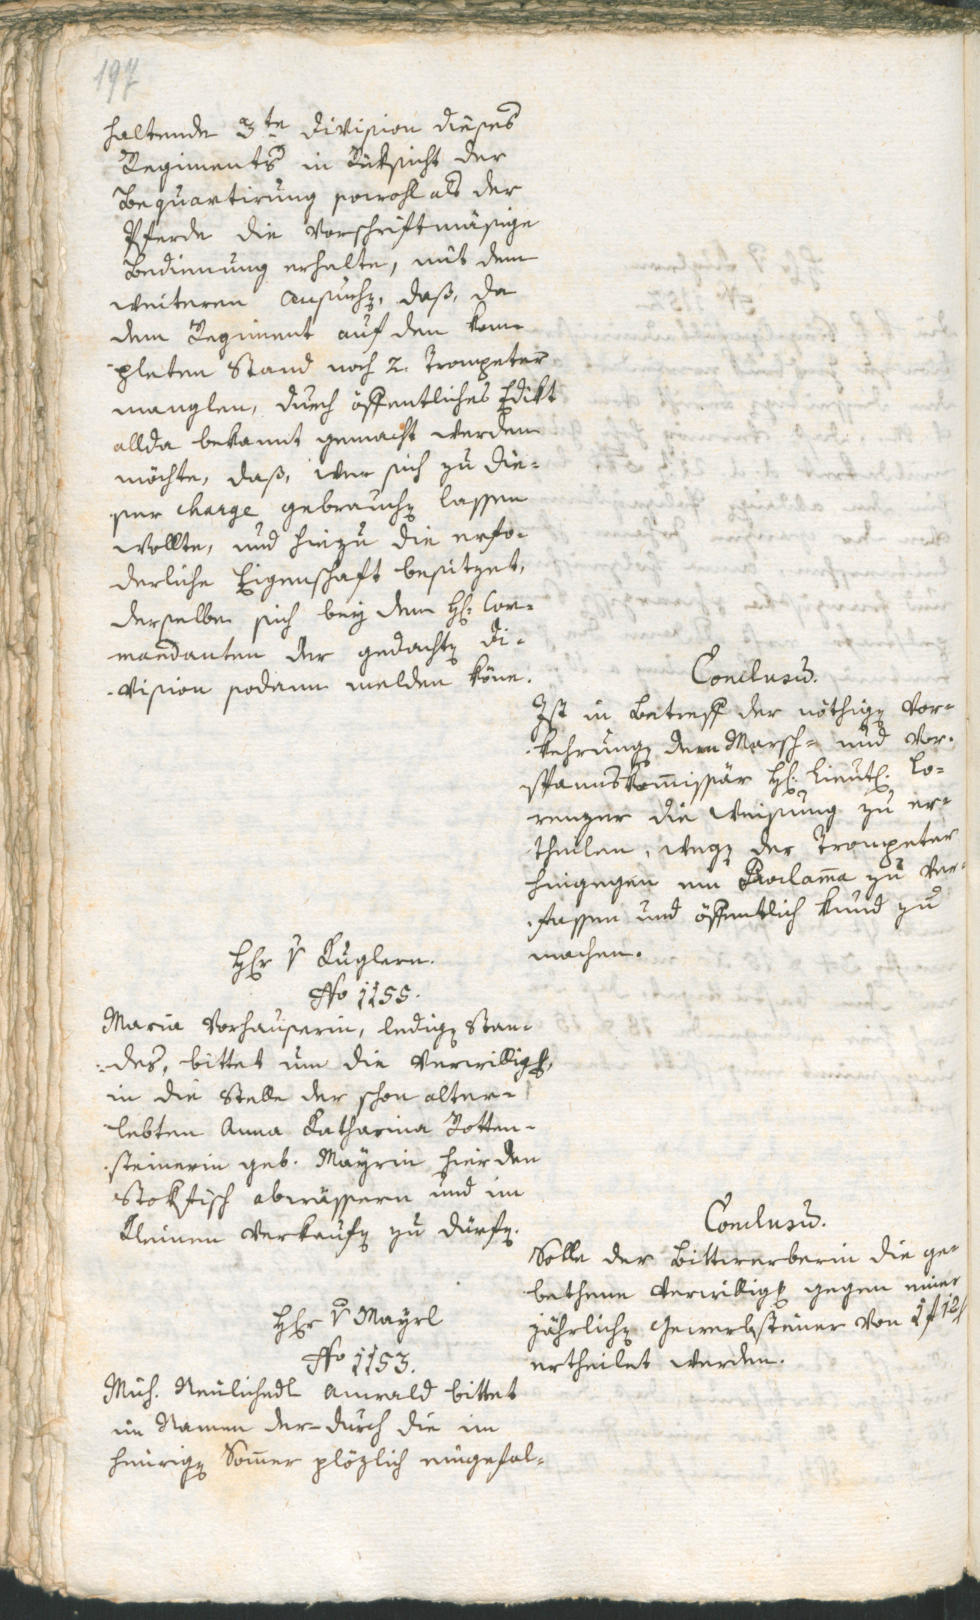 197
haltende 3te Division dieses
Regiments in Rüksicht der
Bequartirung sowohl als der
Pferde die Vorschriftmäsige
Bedienung erhalte, mit dem
weiteren Ansuchen, daß, da
dem Regiment auf den kom-
pleten Stand noch 2. Trompeter
manglen, durch öffentliches Edikt
allda bekannt gemacht werden
möchte, daß, wer sich zu die-
ser charge gebrauchen lassen
wollte, und hiezu die erfo-
derliche Eigenschaft besitzet,
derselbe sich bey dem H: Com-
mandanten der gedachten Di-
vision sodann melden köne.
Conclusum.
Ist in Betreff der nöthigen Vor-
kehrungen dem Marsch- und Vor-
spannskommissär H: Lieut: Lo-
renzer die Weisung zu er-
theilen, wegen der Trompeter
hingegen ein Proclama zu ver-
fassen und öffentlich kund zu
machen.
Hr v Kuglern.
No 1155.
Maria Vorhauserin, ledigen Stan-
des, bittet um die Verwilligung,
in die Stelle der schon alter-
lebten Anna Katharina Rotten-
steinerin geb. Mayrin hier den
Stokfisch abwässern und im
Kleinen verkaufen zu dürfen.
Conclusum.
Solle der Bittwerberin die ge-
bethene Verwilligung gegen einer
jährlichen Gewerbsteuer von 1 f 12
ertheilet werden.
Hr v Mayrl
No 1153.
Mich. Neulichedl Anwald bittet
im Namen der durch die im
heurigen Somer plözlich eingefal-